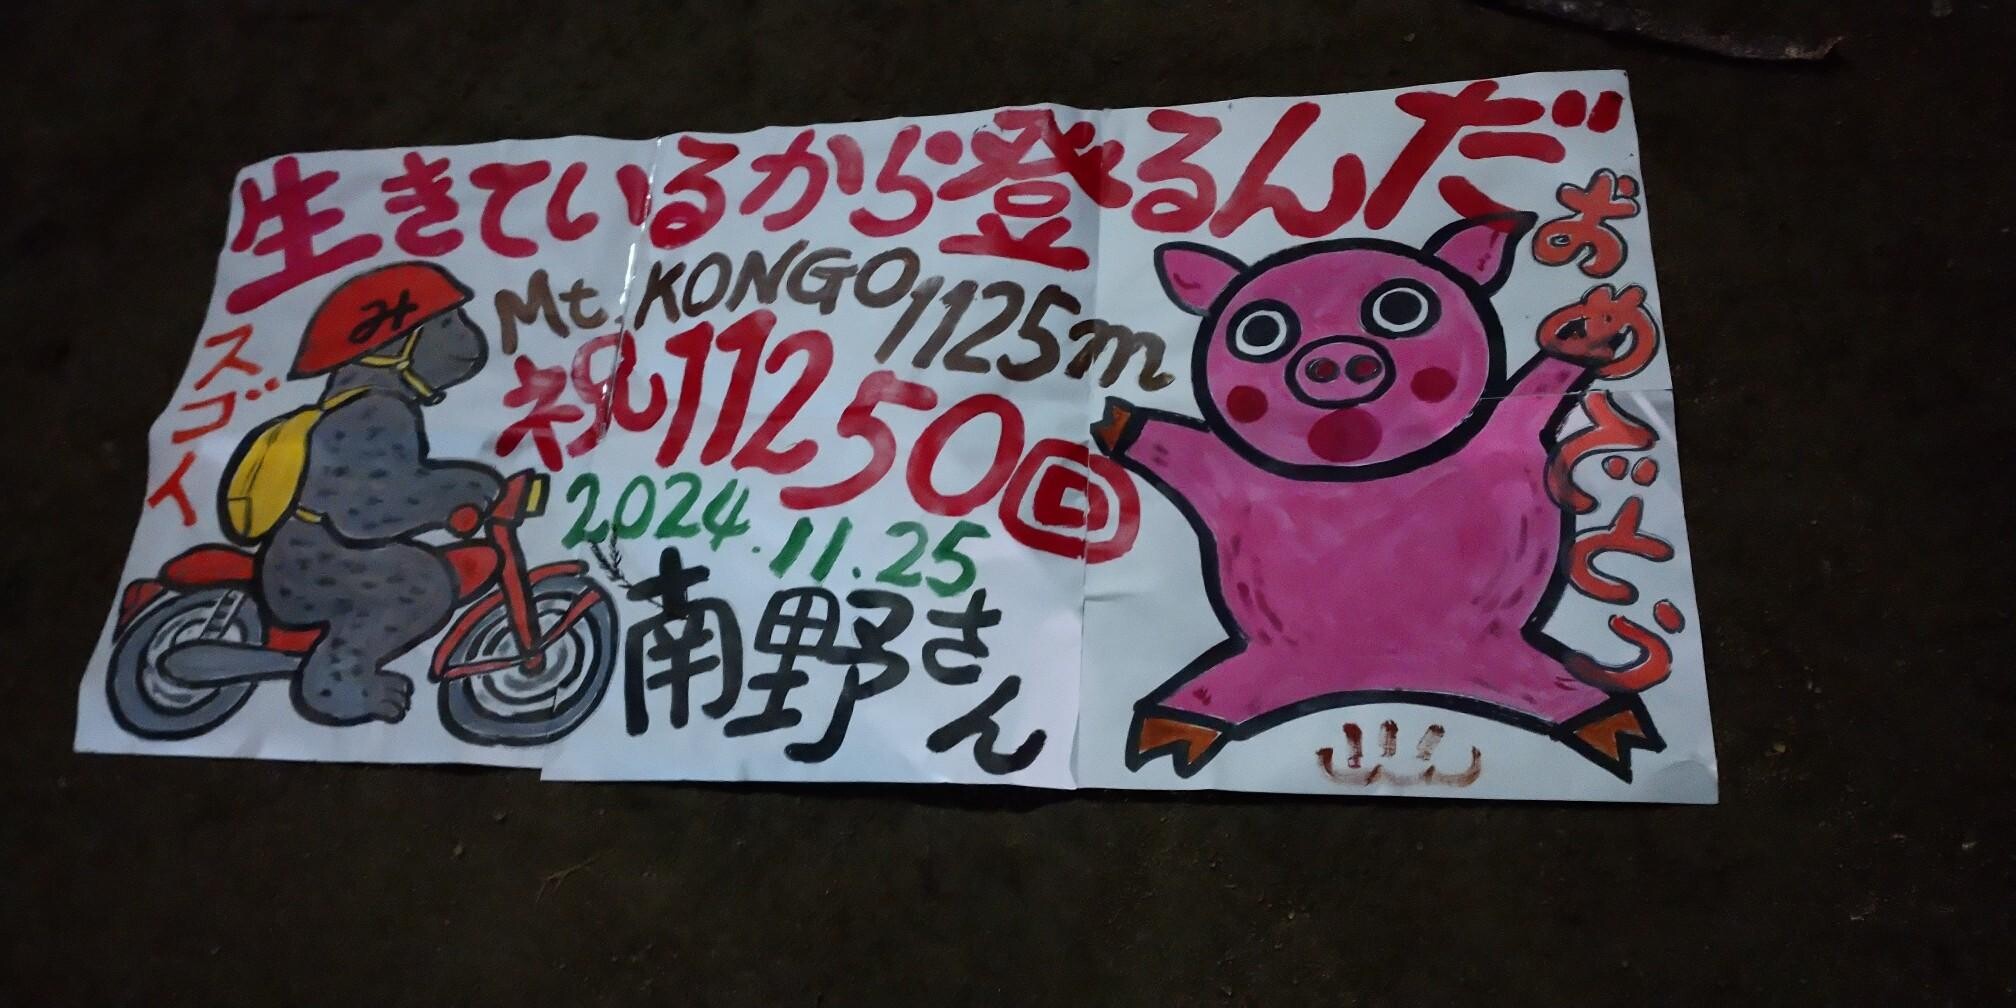 生きているから登るんだ
Mt. KONGO 1125m
祝11250回
2024.11.25
南野さん
スゴイ
み
おめでとう